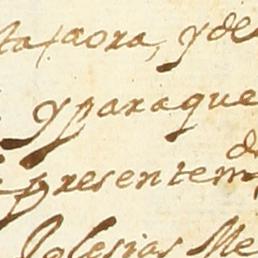 ta aora, y de
y para que
presentem
Iglesias Me